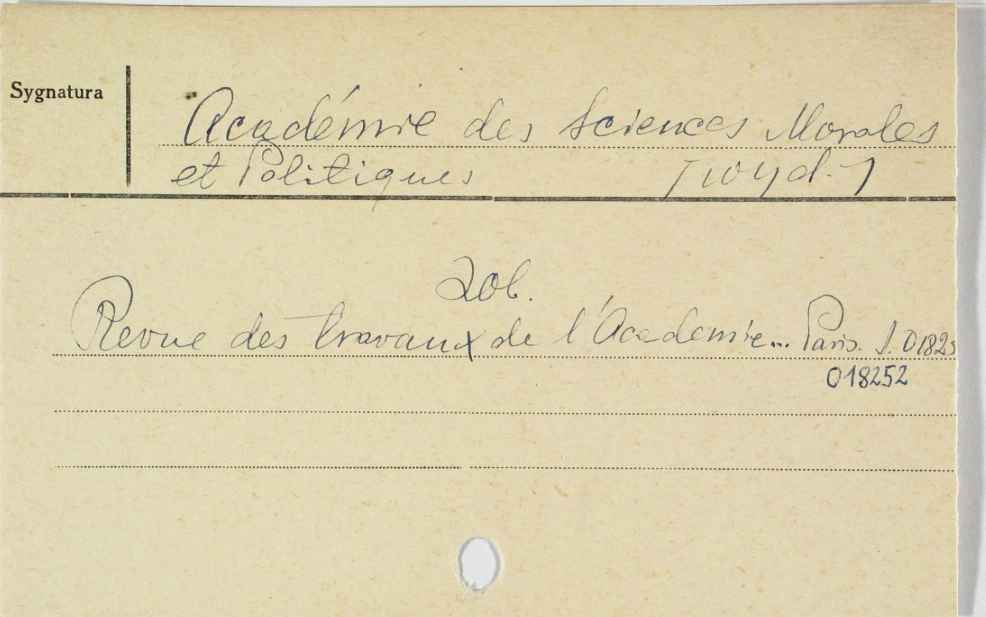 Sygnatura
Académie des Sciences Morales
et Politiques [wyd.]
Zob.
Revue des travaux de l'Academie... Paris. S. 01825
018252